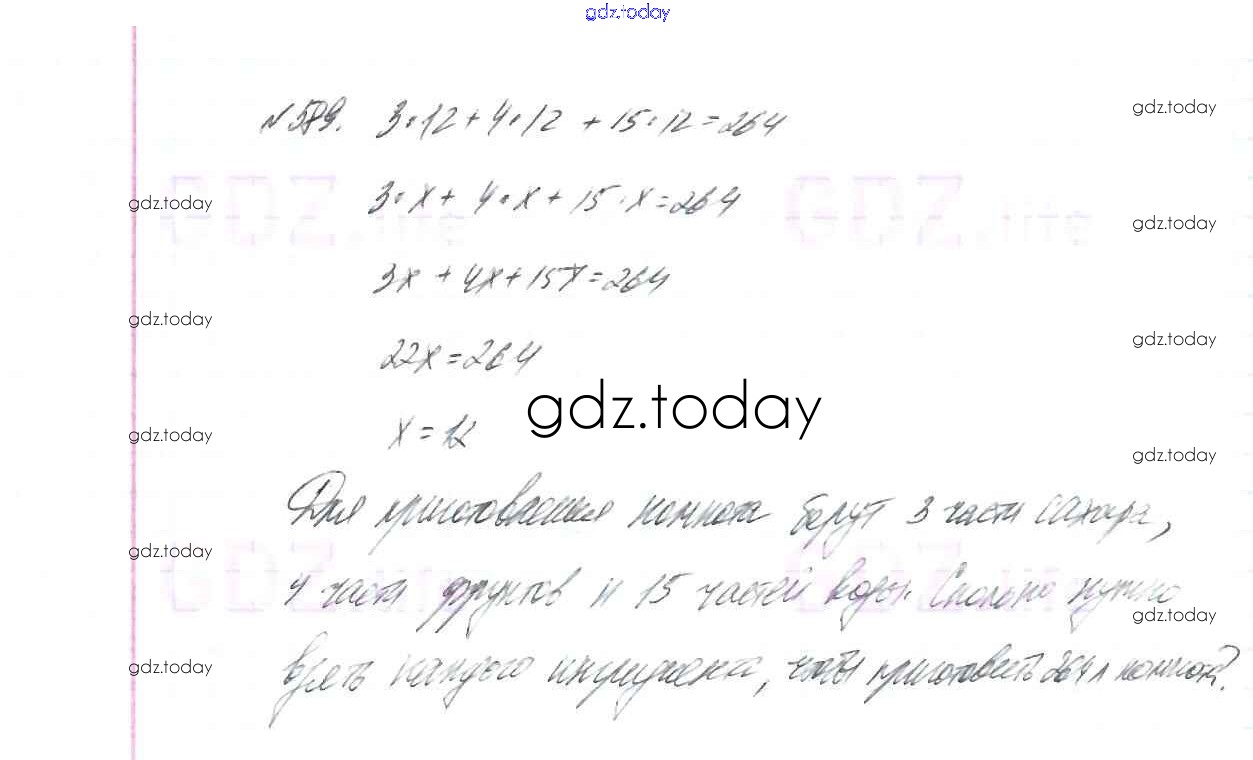 gdz.today
№589. 3·12+4·12 +15·12=264
gdz.today
3·x+ 4·x+ 15·x=264
gdz.today
gdz.today
3x + 4x+15x=264
gdz.today
22x=264
gdz.today
gdz.today
x=12
gdz.today
gdz.today
Для приготовления компота берут 3 части сахара,
gdz.today
4 части фруктов и 15 частей воды. Сколько нужно
gdz.today
взять каждого ингридиента, чтобы приготовить 264 л компота?
gdz.today
GDZ.life
GDZ.life
GDZ
GDZ